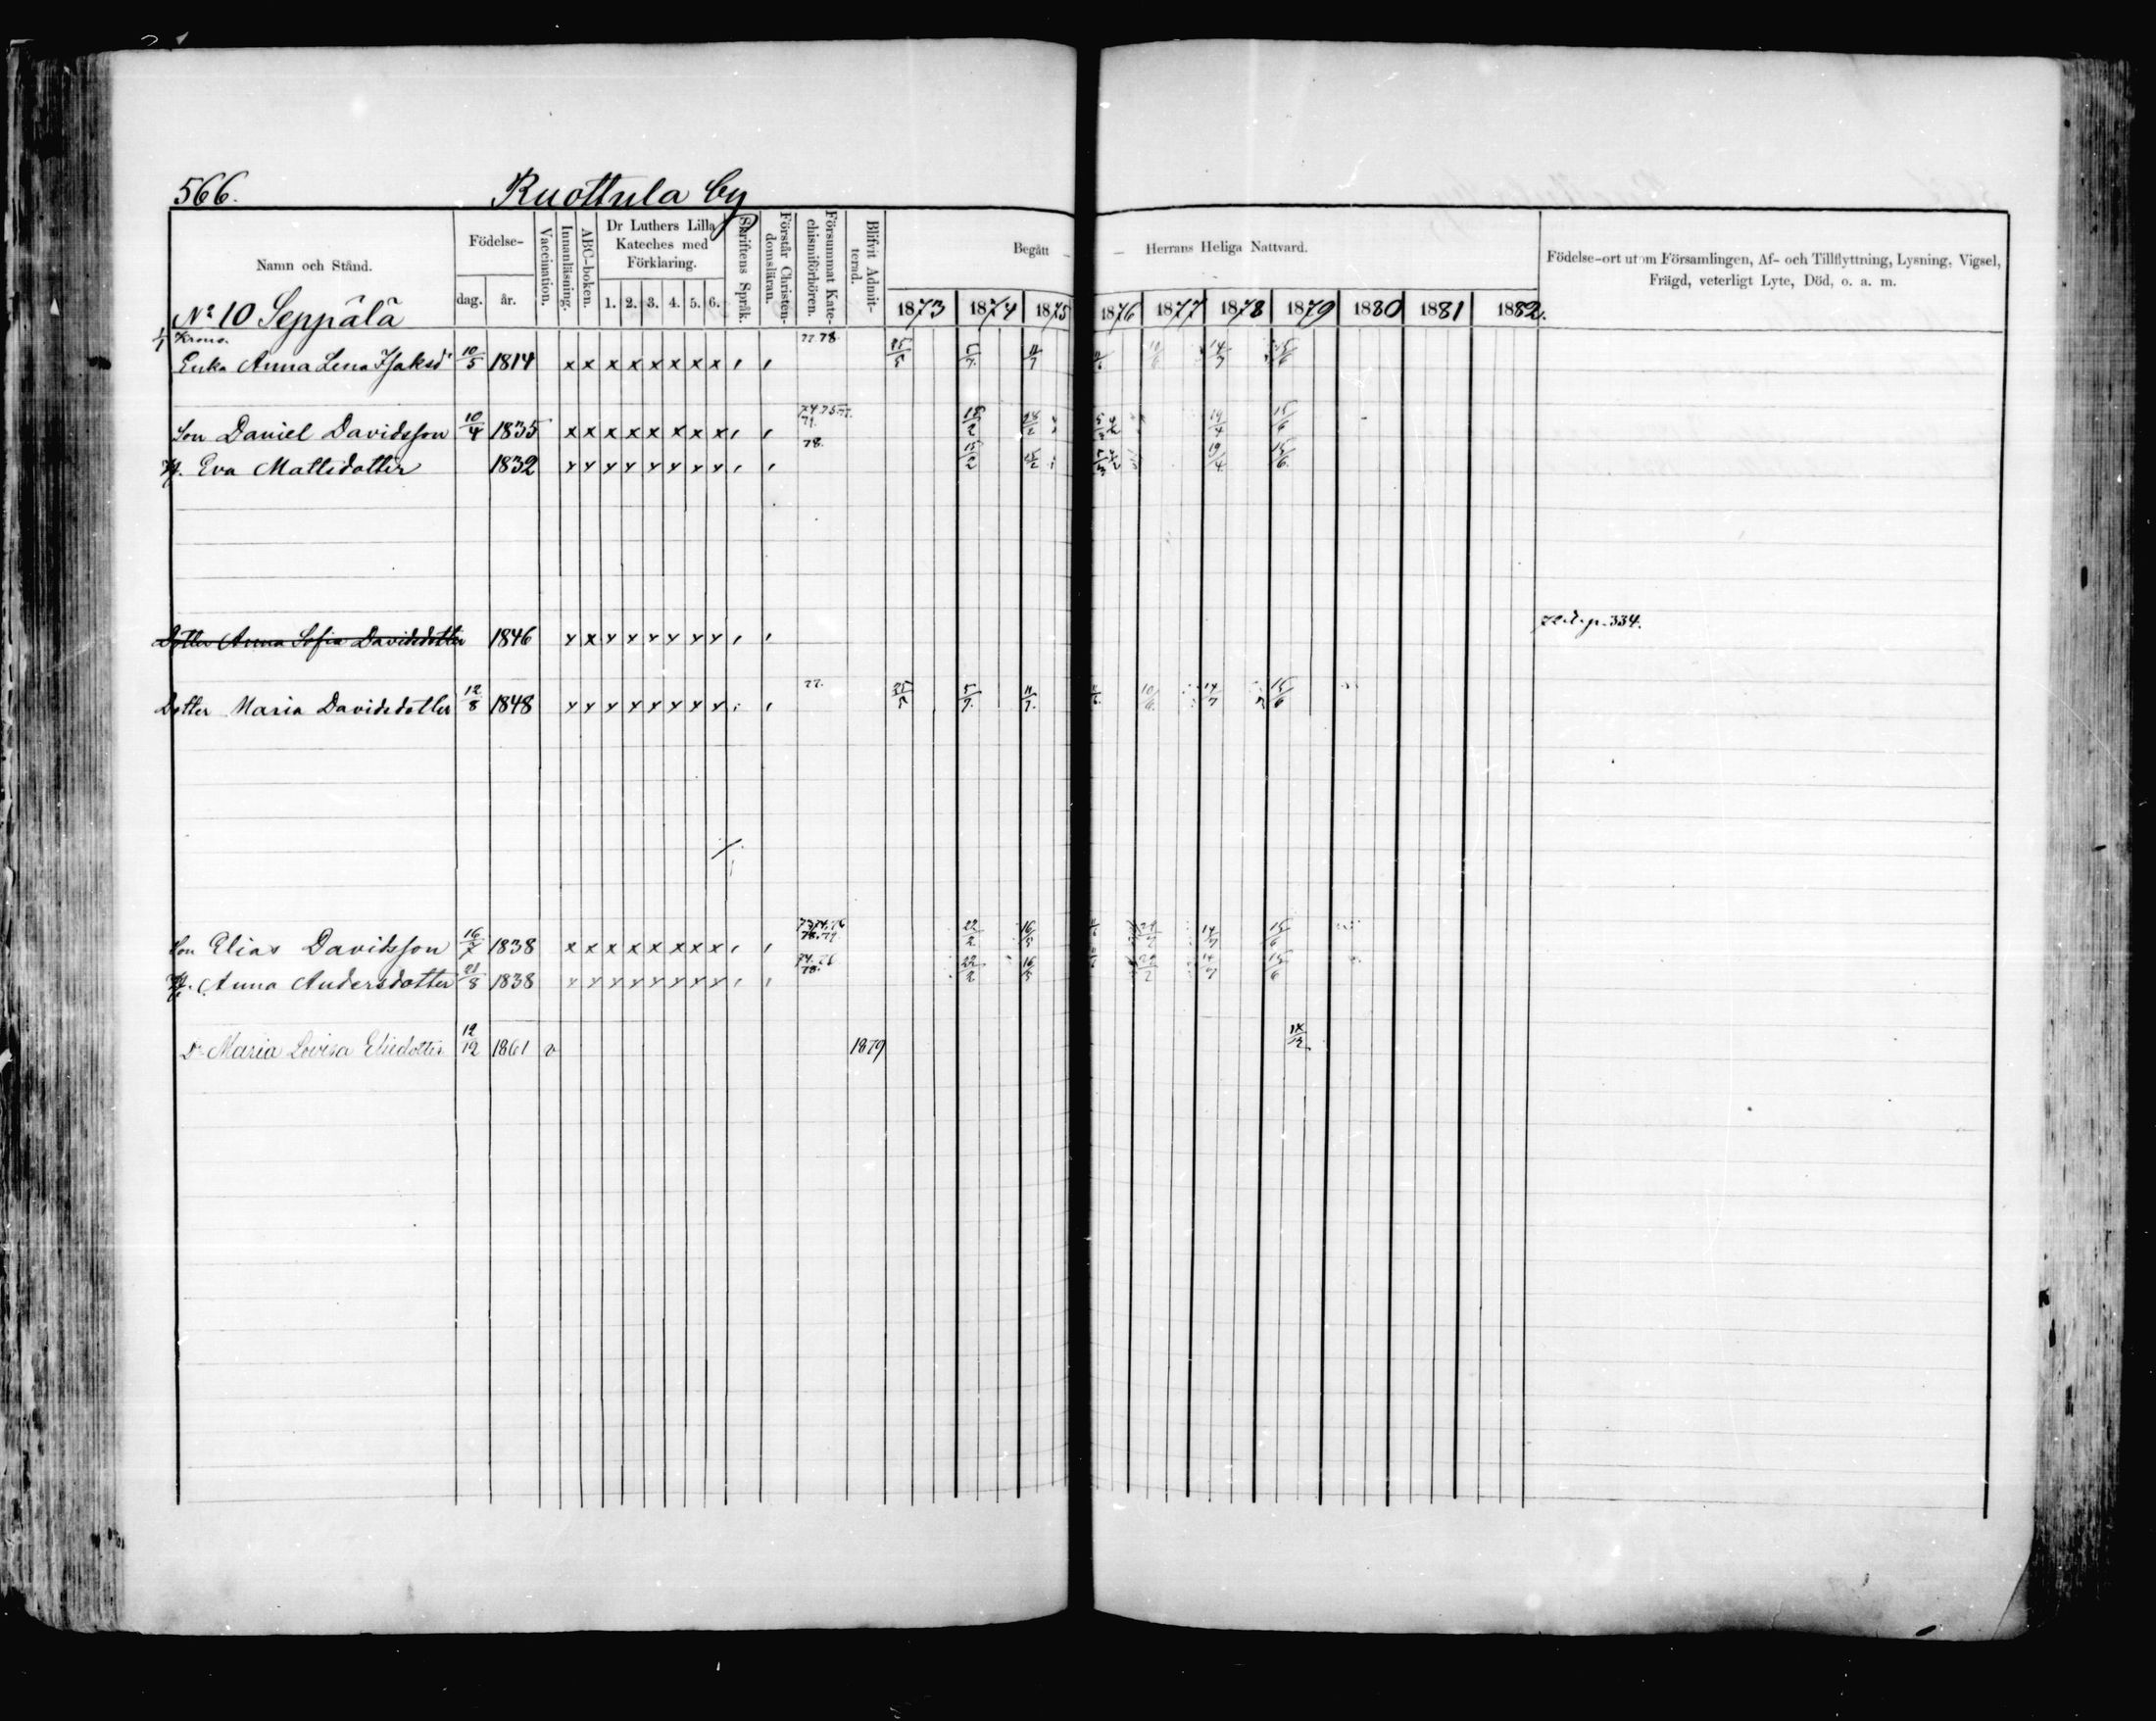 566.
Ruottula by
Namn och Stånd.
Födelse-
dag.
år.
Vaccination.
Innanläsning.
ABC-boken.
Dr Luthers Lilla
Kateches med
Förklaring.
1. 2. 3. 4. 5. 6.
Skriftens Språk.
Förstår Christen-
domsläran.
Försummat Kate-
chismiförhören.
Blifvit Admit-
terad.
Begått — — Herrans Heliga Nattvard.
1873 1874 1875 1876 1877 1878 1879 1880 1881 1882.
Födelse-ort utom Församlingen, Af- och Tillflyttning, Lysning, Vigsel,
Frägd, veterligt Lyte, Död, o. a. m.
No 10 Seppälä
Krono.
Enka Anna Lena Isaksd 10/5 1814 x x x x x x x x 77 78 5/7 11/7 14/7 15/6
Son Daniel Davidsson 10/4 1835 x x x x x x x x 74 75 77. 18/2 19/4 15/6
H. Eva Mattsdotter 1832 x x x x x x x x 78. 15/2 19/4 15/6
Dotter Anna Sofia Davidsdotter 1846 x x x x x x x x p. 334.
Dotter Maria Davidsdotter 12/8 1848 x x x x x x x x 77. 5/7 11/7 10/6 14/7 15/6
Son Elias Davidsson 16/7 1838 x x x x x x x x 78. 79 22/2 16/5 14/7 15/6
H. Anna Andersdotter 21/8 1838 x x x x x x x x 78. 22/2 16/5 14/7 15/6
Dr Maria Lovisa Eliedotter 12/12 1861 v 1879